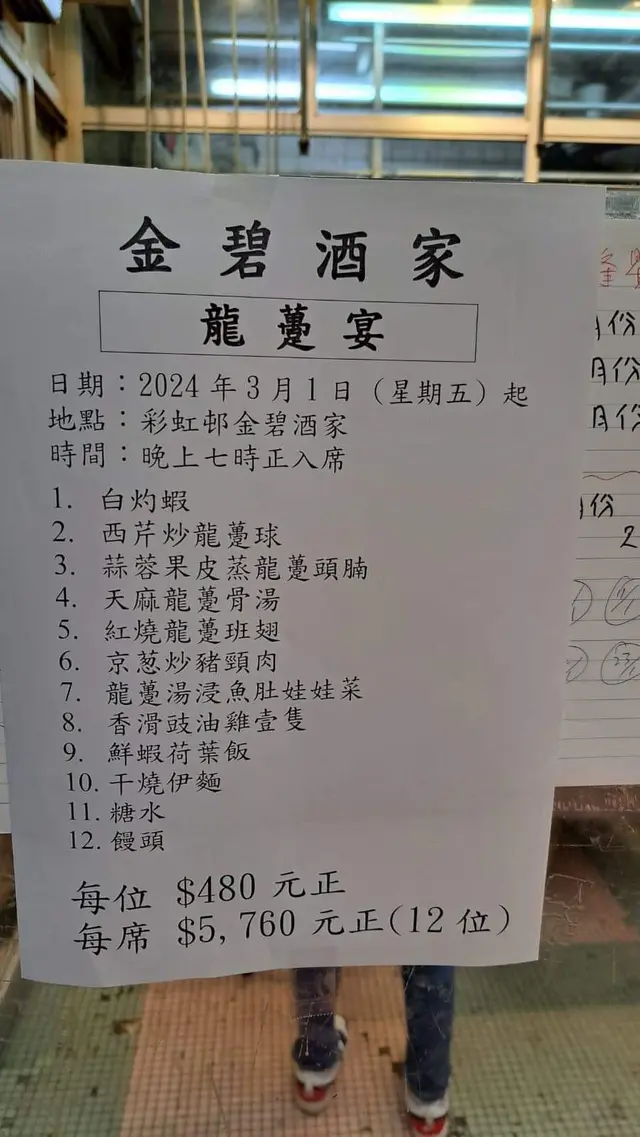 金碧酒家
龍躉宴
日期：2024年3月1日（星期五）起
地點：彩虹邨金碧酒家
時間：晚上七時正入席
1. 白灼蝦
2. 西芹炒龍躉球
3. 蒜蓉果皮蒸龍躉頭腩
4. 天麻龍躉骨湯
5. 紅燒龍躉班翅
6. 京葱炒豬頸肉
7. 龍躉湯浸魚肚娃娃菜
8. 香滑豉油雞壹隻
9. 鮮蝦荷葉飯
10. 干燒伊麵
11. 糖水
12. 饅頭
每位 $480 元正
每席 $5,760 元正(12 位)
月份
月份
月份
份
2